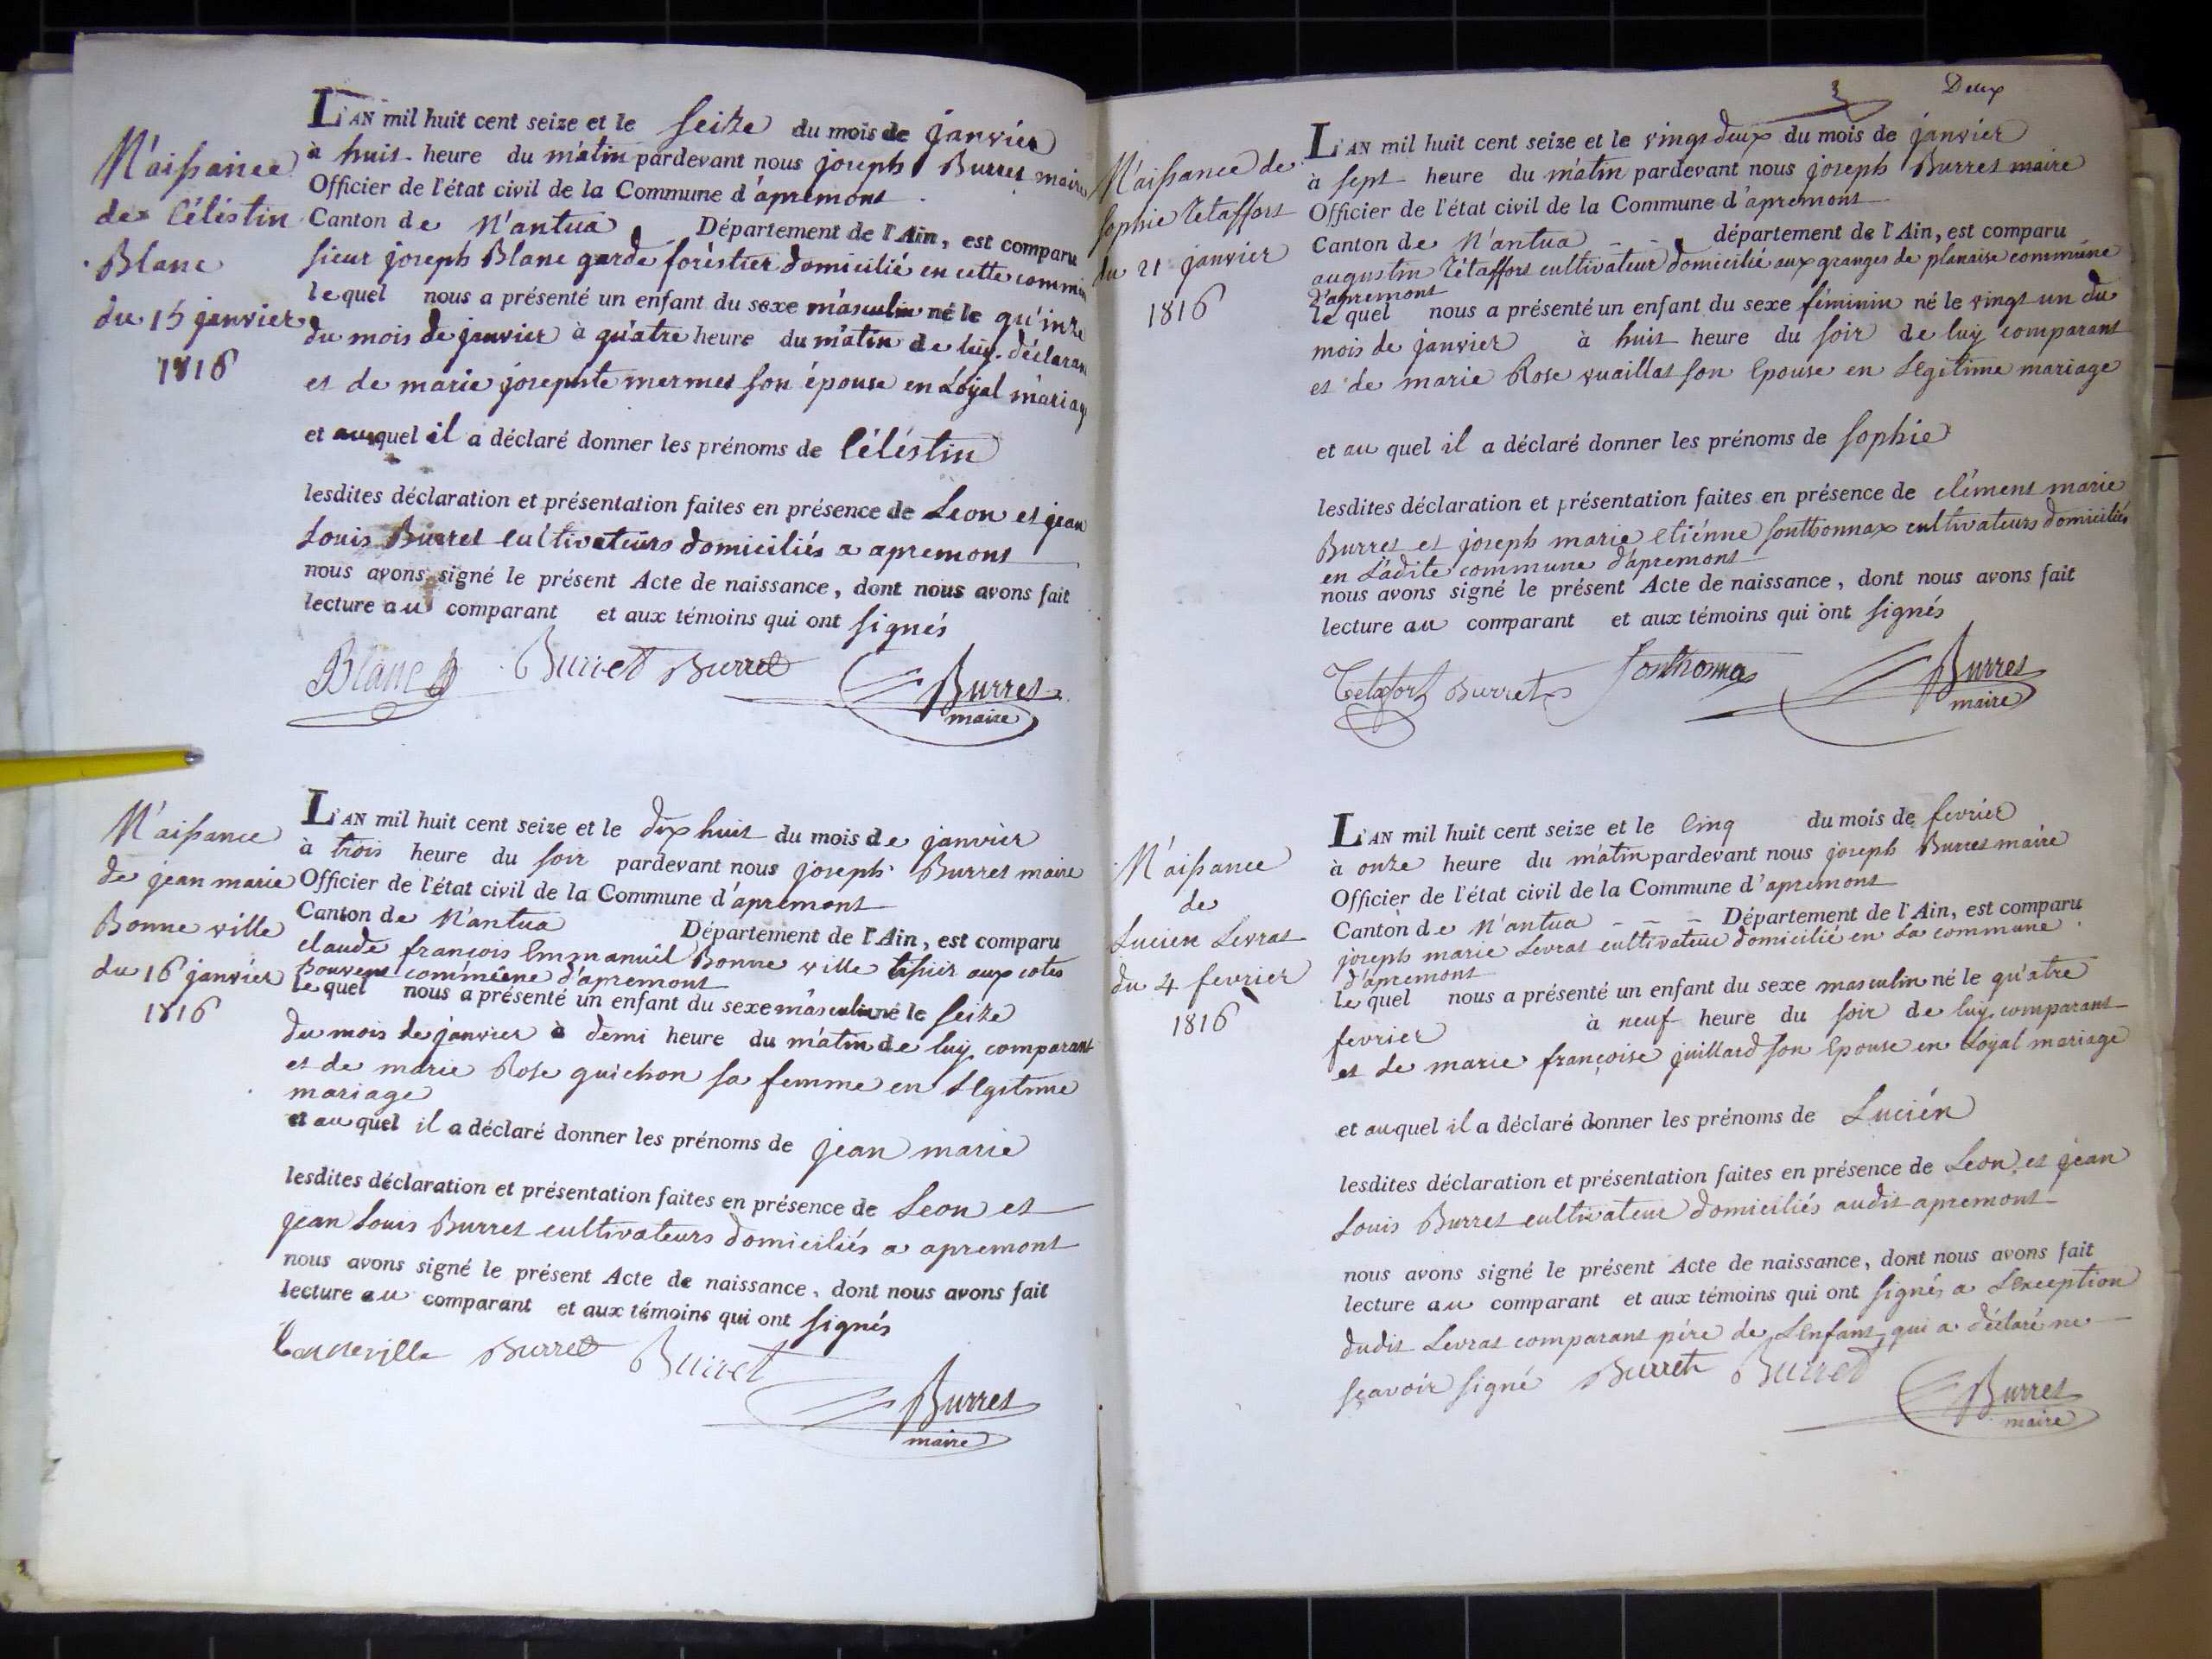 N'aissance
de Céléstin
Blanc
du 15 janvier
1816
L'AN mil huit cent seize et le seize du mois de janvier
à huit heure du matin pardevant nous joseph Burret maire
Officier de l'état civil de la Commune d'apremont
Canton de N'antua Département de l'Ain, est comparu
sieur joseph Blanc garde foréstier domicilié en cette commune
lequel nous a présenté un enfant du sexe masculin né le qu'inze
du mois de janvier à quatre heure du matin de luy déclarant
et de marie josephte mermet son épouse en Loyal mariage
et auquel il a déclaré donner les prénoms de Céléstin
lesdites déclaration et présentation faites en présence de Leon et jean
Louis Burret cultivateurs domiciliés a apremont
nous avons signé le présent Acte de naissance, dont nous avons fait
lecture au comparant et aux témoins qui ont signés
Blanc Burret Burret Burret
maire
N'aissance
de jean marie
Bonne ville
du 16 janvier
1816
L'AN mil huit cent seize et le dix huit du mois de janvier
à trois heure du soir pardevant nous joseph Burret maire
Officier de l'état civil de la Commune d'apremont
Canton de N'antua Département de l'Ain, est comparu
claude françois Emmanuël Bonne ville tissier aux cotes
commune d'apremont
lequel nous a présenté un enfant du sexe masculin né le seize
du mois de janvier à demi heure du matin de luy comparant
et de marie Rose guichon sa femme en Légitime
mariage
et auquel il a déclaré donner les prénoms de jean marie
lesdites déclaration et présentation faites en présence de Leon et
jean Louis Burret cultivateurs domiciliés a apremont
nous avons signé le présent Acte de naissance, dont nous avons fait
lecture au comparant et aux témoins qui ont signés
bonneville Burret Burret
Burret
maire
Deux
N'aissance de
sophie Tétaffort
du 21 janvier
1816
L'AN mil huit cent seize et le vingt deux du mois de janvier
à sept heure du matin pardevant nous joseph Burret maire
Officier de l'état civil de la Commune d'apremont
Canton de N'antua département de l'Ain, est comparu
augustin Tétaffort cultivateur domicilié aux granges de planaise commune
d'apremont
lequel nous a présenté un enfant du sexe féminin né le vingt un du
mois de janvier à huit heure du soir de luy comparant
et de marie Rose vuaillat son Epouse en Légitime mariage
et au quel il a déclaré donner les prénoms de sophie
lesdites déclaration et présentation faites en présence de clément marie
Burret et joseph marie Etiénne sonthonnax cultivateurs domiciliés
en Ladite commune d'apremont
nous avons signé le présent Acte de naissance, dont nous avons fait
lecture au comparant et aux témoins qui ont signés
Tetafort Burret Sonthonnax Burret
maire
N'aissance
de
Lucien Levrat
du 4 fevrier
1816
L'AN mil huit cent seize et le Cinq du mois de fevrier
à onze heure du matin pardevant nous joseph Burret maire
Officier de l'état civil de la Commune d'apremont
Canton de N'antua Département de l'Ain, est comparu
joseph marie Levrat cultivateur domicilié en La commune
d'apremont
lequel nous a présenté un enfant du sexe masculin né le qu'atre
fevrier à neuf heure du soir de luy comparant
et de marie françoise juillard son Epouse en Loyal mariage
et auquel il a déclaré donner les prénoms de Lucién
lesdites déclaration et présentation faites en présence de Leon et jean
Louis Burret cultivateur domiciliés audit apremont
nous avons signé le présent Acte de naissance, dont nous avons fait
lecture au comparant et aux témoins qui ont signés a Lexception
dudit Levrat comparant pére de Lenfant qui a déclaré ne
sçavoir signé Burret Burret Burret
maire